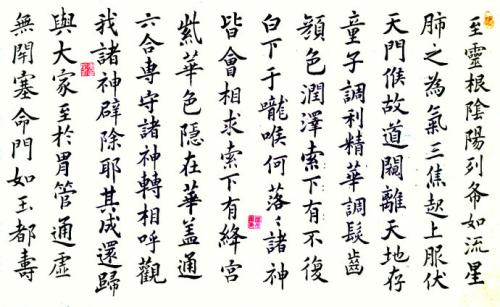 至靈根陰陽列爷如流星
肺之為氣三焦起上服伏
天門候故道闚離天地存
童子調利精華調髮齒
顏色潤澤索下有不復
白下于嚨喉何落〻諸神
皆會相求索下有絳宮
紫華色隱在華盖通
六合專守諸神轉相呼觀
我諸神辟除耶其成還歸
與大家至於胃管通虛
無閉塞命門如玉都壽